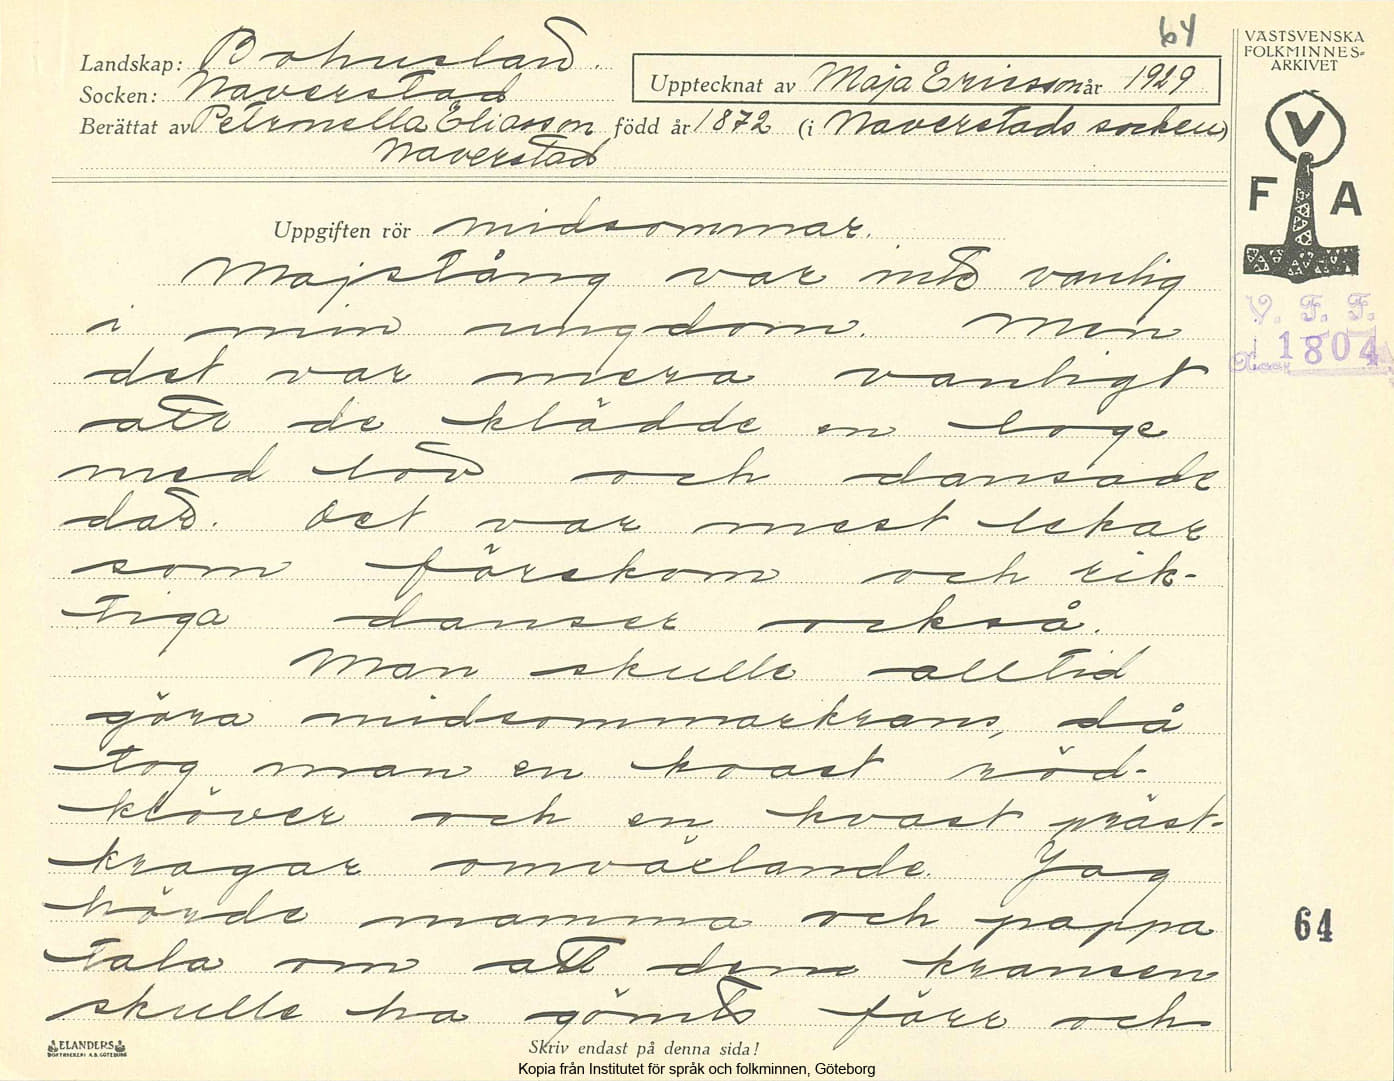 64
Landskap: Bohuslän.
Socken: Naverstad
Upptecknat av Maja Ericsson år 1929
Berättat av Petronella Eliasson född år 1872 (i Naverstads socken)
Naverstad
VÄSTSVENSKA
FOLKMINNES-
ARKIVET
V
F A
V. F. F.
1804
Uppgiften rör midsommar.
Majstång var inte vanlig
i min ungdom. Men
det var mera vanligt
att de klädde en loge
med löv och dansade
där. Det var mest lekar
som förekom och rik-
tiga danser också.
Man skulle alltid
göra midsommarkrans, då
tog man en kvast röd-
klöver och en kvast präst-
kragar omvärlande. Jag
hörde mamma och pappa
tala om att denne kransen
skulle ha gömts förr och
64
ELANDERS
BOKTRYCKERI A.B. GÖTEBORG
Skriv endast på denna sida!
Kopia från Institutet för språk och folkminnen, Göteborg